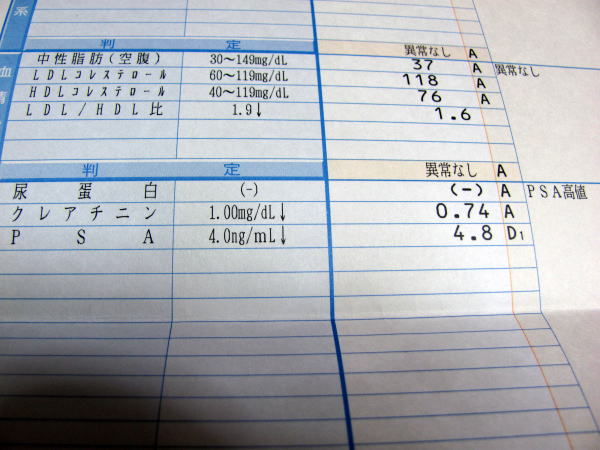 系
判 定 異常なし A
中性脂肪(空腹) 30～149mg/dL 37 A 異常なし
LDLコレステロール 60～119mg/dL 118 A
HDLコレステロール 40～119mg/dL 76 A
LDL/HDL比 1.9↓ 1.6
血
清
判 定 異常なし A
尿蛋白 (-) (-) A PSA高値
クレアチニン 1.00mg/dL↓ 0.74 A
PSA 4.0ng/mL↓ 4.8 D1